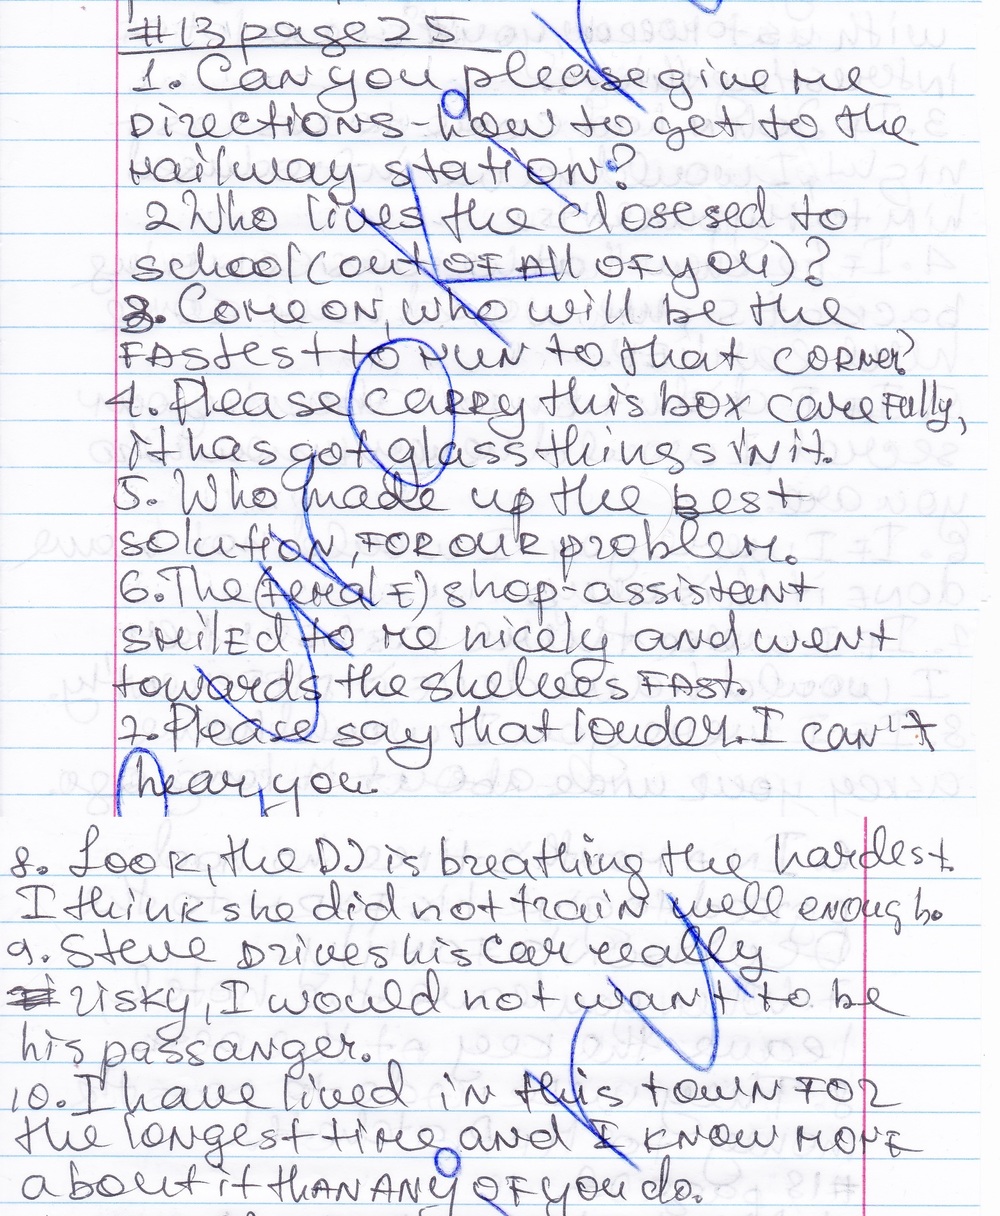 #13 page 25
1. Can you please give me
Directions how to get to the
railway station?
2 Who lives the closesed to
school (out of all of you)?
3. Come on, who will be the
fastest to run to that corner?
4. Please carry this box carefully,
it has got glass things in it.
5. Who made up the best
solution, for our problem.
6. The (female) shop-assistant
smiled to me nicely and went
towards the shelves fast.
7. Please say that louder. I can't
hear you.
8. Look, the DJ is breathing the hardest.
I think she did not train well enough.
9. Steve drives his car really
risky, I would not want to be
his passanger.
10. I have lived in this town for
the longest time and I know more
about it than any of you do.